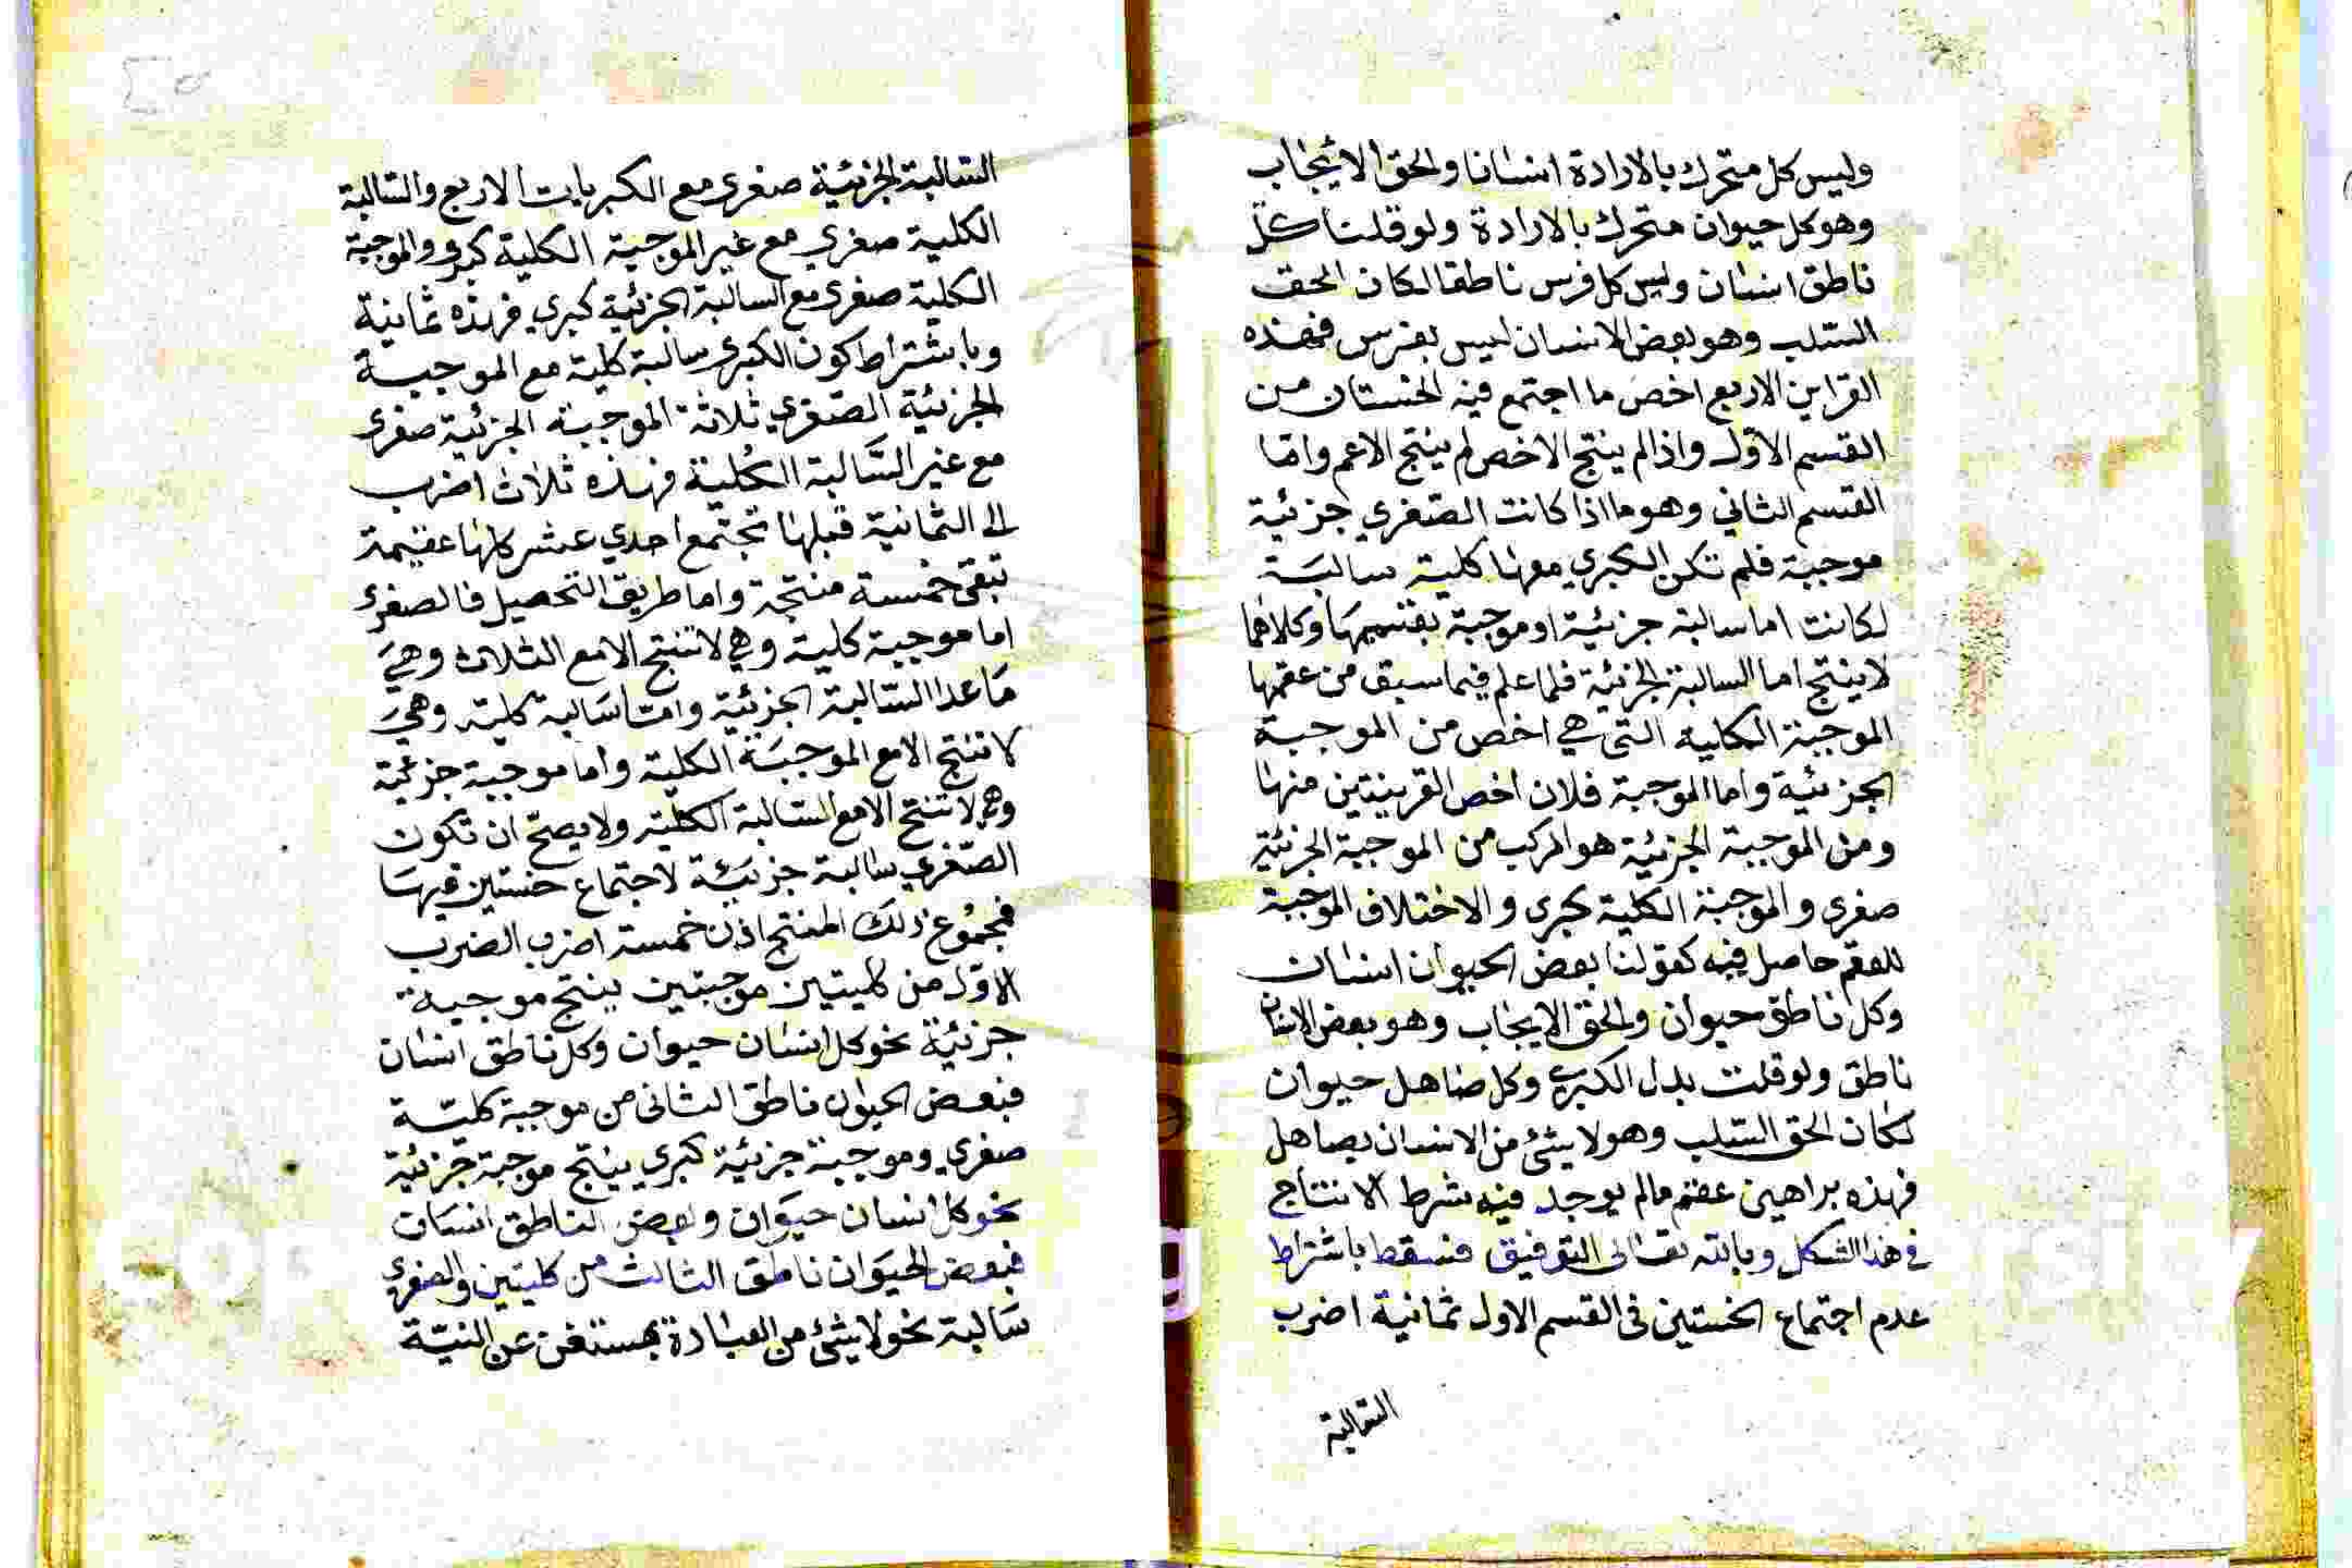 وليس كل متحرك بالارادة انسانا والحق الايجاب
وهو كل حيوان متحرك بالارادة ولو قلنا كل
ناطق انسان وليس كل فرس ناطقا لكان الحق
السلب وهو بعض الانسان ليس بفرس فهذه
القراين الاربع اخص ما اجتمع فيه الخستان من
القسم الاول واذا لم ينتج الاخص لم ينتج الاعم واما
القسم الثاني وهو ما اذا كانت الصغري جزئية
موجبة فلم تكن الكبري معها كلية سالبة
لكانت اما سالبة جزئية او موجبة بقسميها وكلاهما
لا ينتج اما السالبة الجزئية فلما علم فيما سبق من عقمها
الموجبة الكلية التي هي اخص من الموجبة
الجزئية واما الموجبة فلان اخص القرينتين منها
ومن الموجبة الجزئية هو المركب من الموجبة الجزئية
صغرى والموجبة الكلية كبرى والاختلاف الموجبة
للعقم حاصل فيه كقولنا بعض الحيوان انسان
وكل ناطق حيوان والحق الايجاب وهو بعض الانسان
ناطق ولو قلت بدل الكبرى وكل صاهل حيوان
لكان الحق السلب وهو لا شئ من الانسان بصاهل
فهذه براهين عقم مالم يوجد فيه شرط الانتاج
في هذا الشكل وبالله تعالى التوفيق فسقط باشتراط
عدم اجتماع الخستين في القسم الاول ثمانية اضرب
السالبة
السالبة الجزئية صغرى مع الكبريات الاربع والسالبة
الكلية صغري مع غير الموجبة الكلية كبرى والموجبة
الكلية صغرى مع السالبة الجزئية كبري فهذه ثمانية
وباشتراط كون الكبرى سالبة كلية مع الموجبة
الجزئية الصغري ثلاثة الموجبة الجزئية صغرى
مع غير السالبة الكلية فهذه ثلاث اضرب
الى الثمانية قبلها تجتمع احدي عشر كلها عقيمة
تبقى خمسة منتجة واما طريق التحصيل فالصغرى
اما موجبة كلية وهي لا تنتج الا مع الثلاث وهي
ما عدا السالبة الجزئية واما سالبة كلية وهي
لا تنتج الا مع الموجبة الكلية واما موجبة جزئية
وهي لا تنتج الا مع السالبة الكلية ولا يصح ان تكون
الصغري سالبة جزئية لاجتماع خستين فيها
فمجموع ذلك المنتج اذن خمسة اضرب الضرب
الاول من كليتين موجبتين ينتج موجبة
جزئية نحو كل انسان حيوان وكل ناطق انسان
فبعض الحيوان ناطق الثاني من موجبة كلية
صغري وموجبة جزئية كبري ينتج موجبة جزئية
نحو كل انسان حيوان وبعض الناطق انسان
فبعض الحيوان ناطق الثالث من كليتين والصغرى
سالبة نحو لا شئ من العبادة بمستغن عن النية